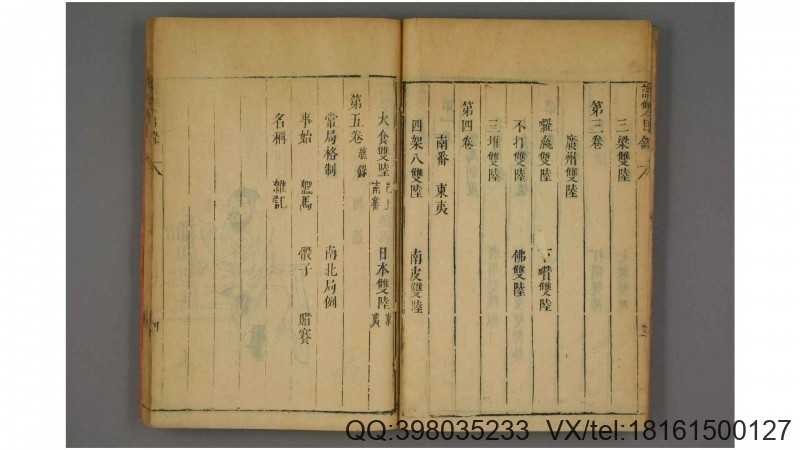 譜雙目錄
三梁雙陸
第三卷
廣州雙陸
囉嬴雙陸 下囋雙陸
不打雙陸 佛雙陸
三堆雙陸
第四卷
南番 東夷
四架八雙陸 南皮雙陸
大食雙陸 已上南番 日本雙陸 東夷
第五卷 雜錄
常局格制 南北局例
事始 盤馬 骰子 賭賽
名稱 雜記
QQ:398035233 VX/tel:18161500127